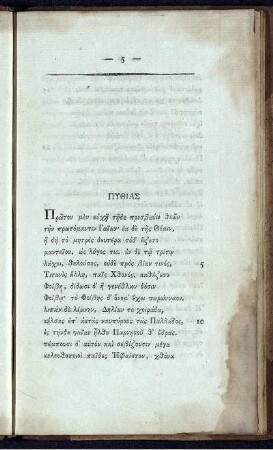 — 5 —
ΠΥΘΙΑΣ
Πρῶτον μὲν εὐχῇ τῇδε πρεσβεύω θεῶν
τὴν πρωτόμαντιν Γαῖαν· ἐκ δὲ τῆς Θέμιν,
ἣ δὴ τὸ μητρὸς δευτέρα τόδ' ἕζετο
μαντεῖον, ὡς λόγος τις. ἐν δὲ τῷ τρίτῳ
λάχει, θελούσης, οὐδὲ πρὸς βίαν τινὸς, 5
Τιτανὶς ἄλλη, παῖς Χθονὸς, καθέζετο
Φοίβη, δίδωσι δ' ἣ γενέθλιον δόσιν
Φοίβῳ· τὸ Φοίβης δ' ὄνομ' ἔχει παρώνυμον.
λιπὼν δὲ λίμνην, Δηλίαν τε χοιράδα,
κέλσας ἐπ' ἀκτὰς ναυπόρους τὰς Παλλάδος, 10
ἐς τήνδε γαῖαν ἦλθε Παρνησοῦ θ' ἕδρας.
πέμπουσι δ' αὐτὸν καὶ σεβίζουσιν μέγα
κελευθοποιοὶ παῖδες Ἡφαίστου, χθόνα